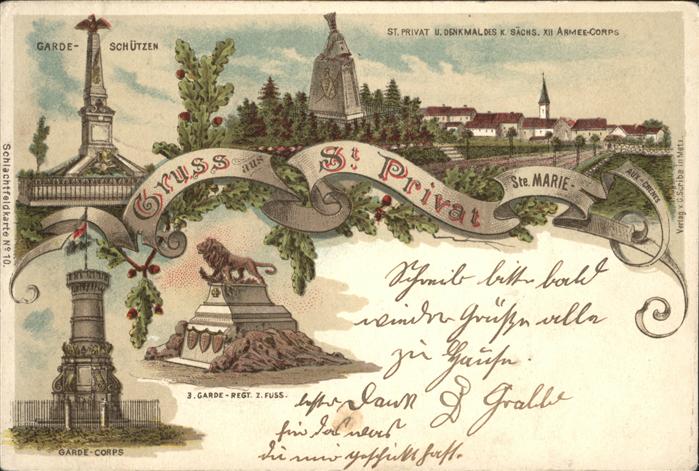 GARDE- SCHÜTZEN
ST. PRIVAT U. DENKMAL DES K. SÄCHS. XII ARMEE-CORPS
Gruss aus St Privat
Ste. MARIE-
AUX-CHÊNES
Schlachtfeldkarte No 10.
Verlag v. C. Scriba in Metz.
3. GARDE-REGT. Z. FUSS.
GARDE-CORPS
Schreib bitte bald
wieder Grüße alle
zu Hause.
Dank
für das was
du mir geschickt hast.